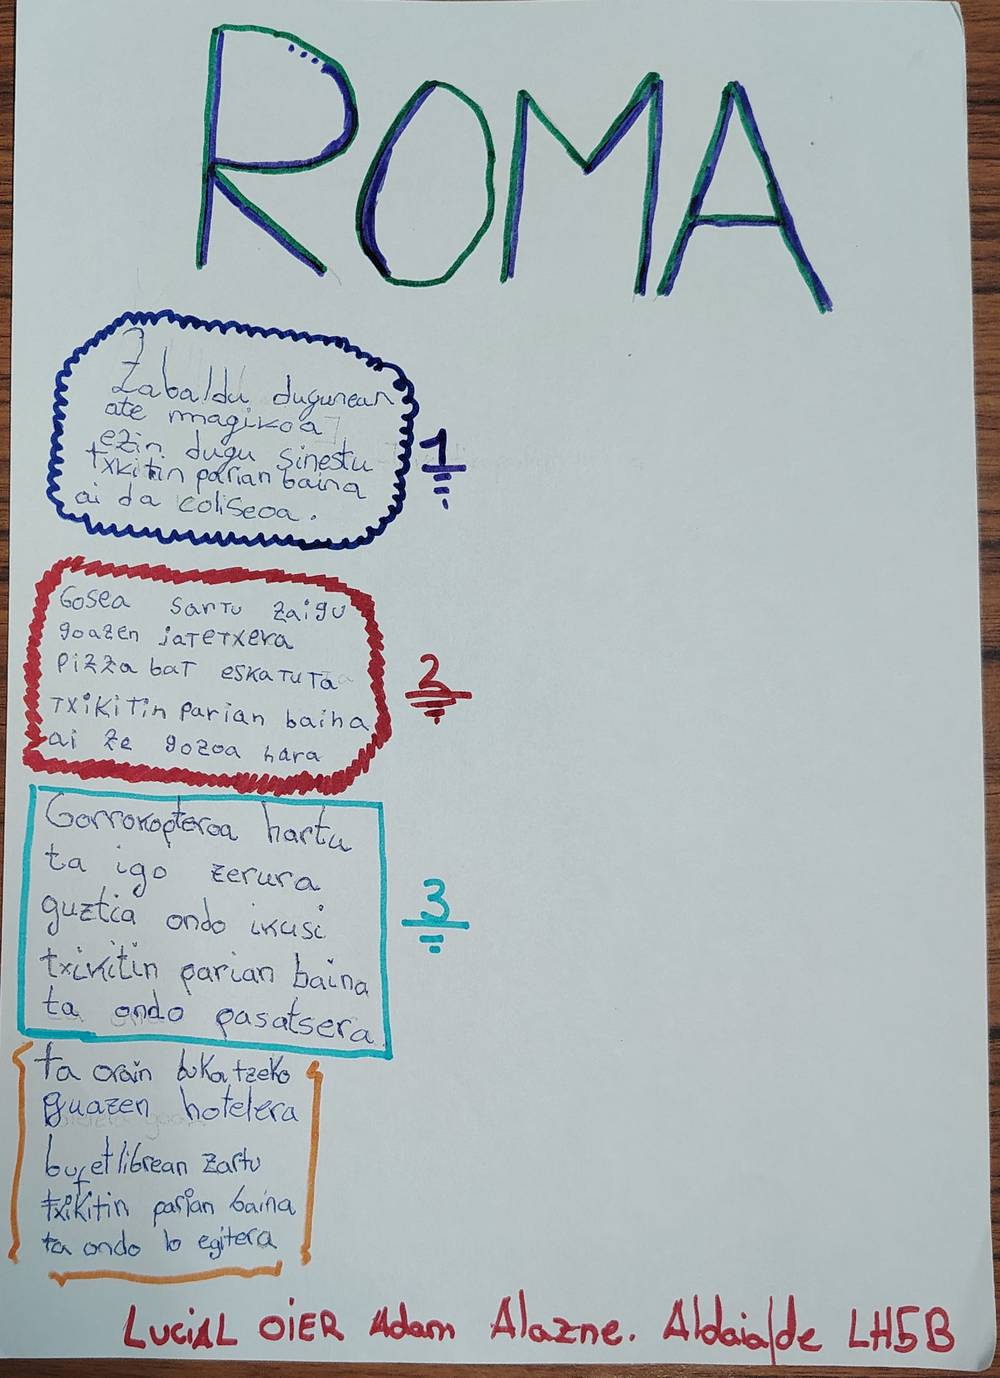 ROMA
Zabaldu dugunean
ate magikoa
ezin dugu sinestu
txkitin parian baina
ai da coliseoa.
1
Gosea sartu zaigu
goazen jatetxera
pizza bat eskatuta
txikitin parian baina
ai ze gozoa hara
2
Gorrokopteroa hartu
ta igo zerura
guztia ondo ikusi
txikitin parian baina
ta ondo pasatsera
3
ta orain bukatzeko
guazen hotelera
bufet librean zartu
txikitin parian baina
ta ondo lo egitera
LUCIAL OIER Adam Alazne. Aldaialde LH5B